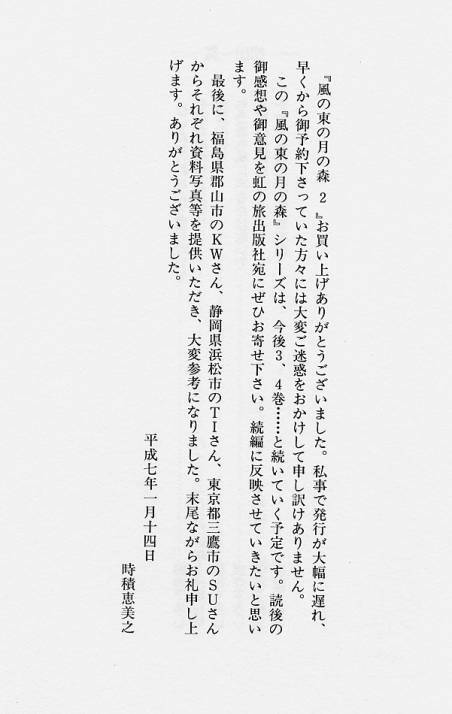 『風の東の月の森 2』お買い上げありがとうございました。私事で発行が大幅に遅れ、
早くから御予約下さっていた方々には大変ご迷惑をおかけして申し訳けありません。
この『風の東の月の森』シリーズは、今後3、4巻……と続いていく予定です。読後の
御感想や御意見を虹の旅出版社宛にぜひお寄せ下さい。続編に反映させていきたいと思い
ます。
最後に、福島県郡山市のKWさん、静岡県浜松市のTIさん、東京都三鷹市のSUさん
からそれぞれ資料写真等を提供いただき、大変参考になりました。末尾ながらお礼申し上
げます。ありがとうございました。
平成七年一月十四日
時積恵美之